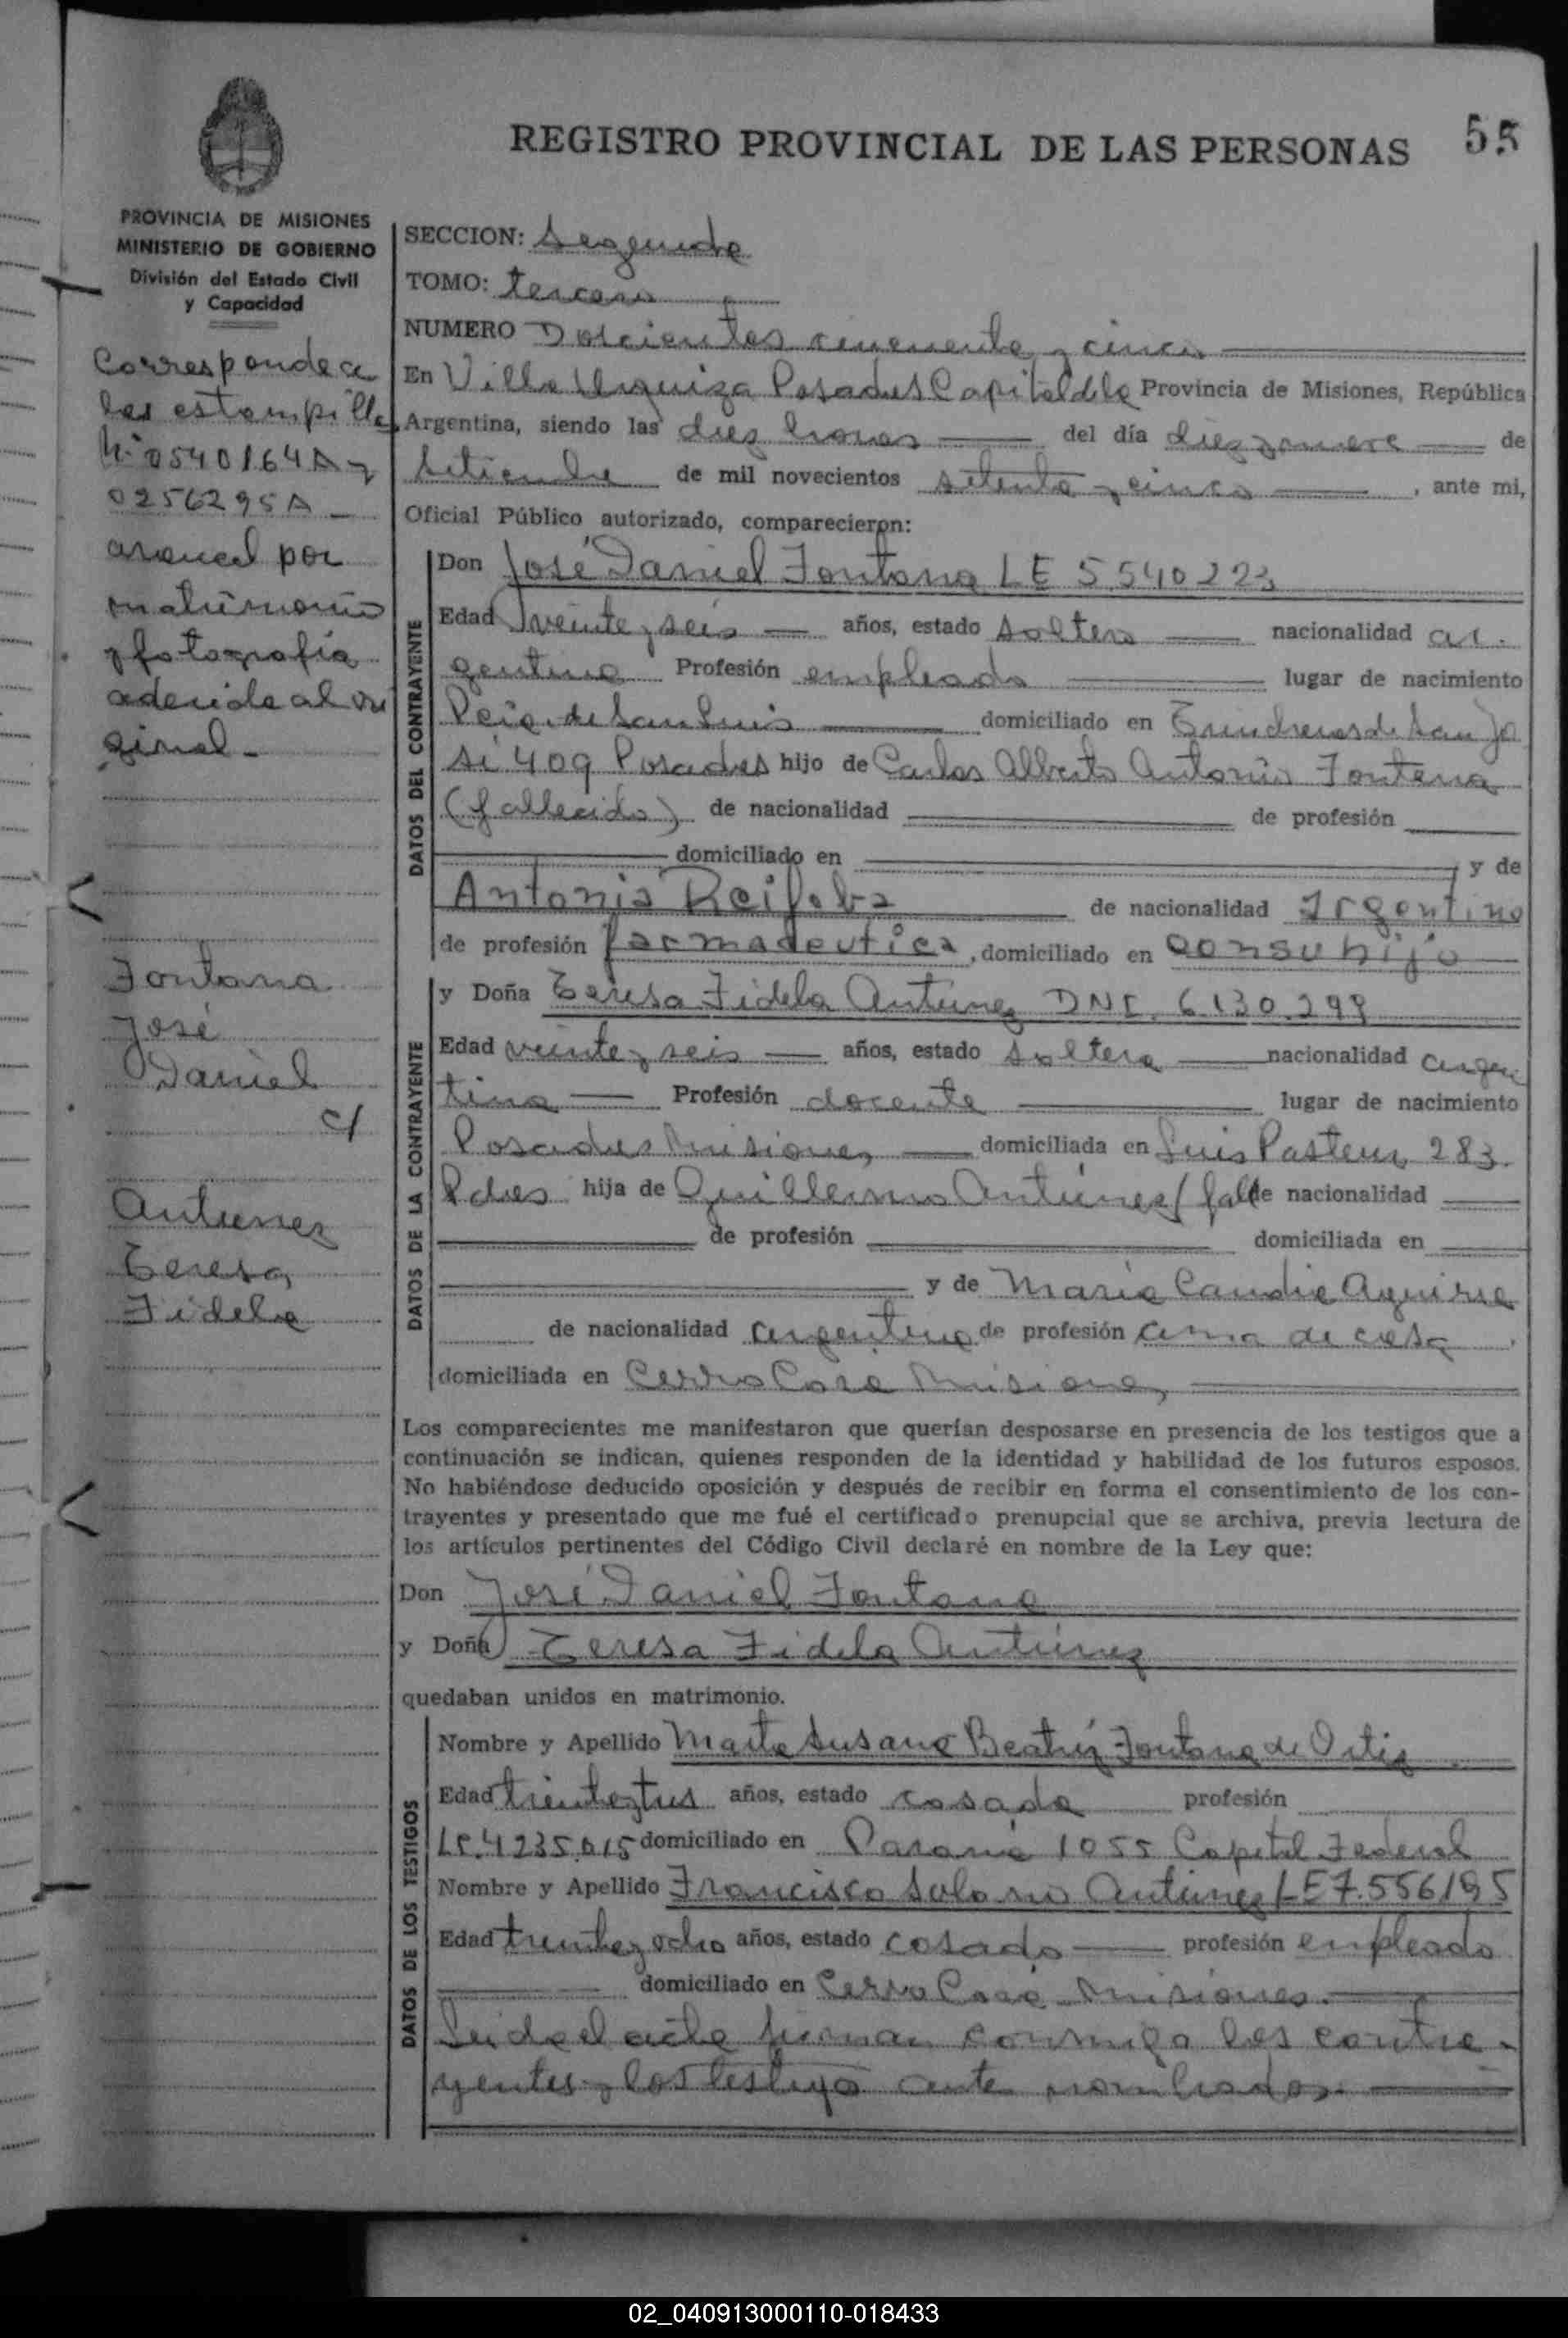 REGISTRO PROVINCIAL DE LAS PERSONAS 55
PROVINCIA DE MISIONES
MINISTERIO DE GOBIERNO
División del Estado Civil
y Capacidad
Corresponde a
las estampillas
Nº 0540164A y
0256295A
arancel por
matrimonio
y fotografía
aderida al ori
ginal
Fontana
José
Daniel
c/
Antunez
Teresa
Fidela
SECCION: Segunda
TOMO: tercero
NUMERO Doscientos cincuenta y cinco
En Villa Urquiza Posadas Capital de la Provincia de Misiones, República
Argentina, siendo las diez horas del día diez y nueve de
Setiembre de mil novecientos setenta y cinco, ante mi,
Oficial Público autorizado, comparecieron:
DATOS DEL CONTRAYENTE
Don José Daniel Fontana LE 5.540223
Edad veinte y seis años, estado soltero nacionalidad ar
gentina Profesión empleado lugar de nacimiento
Pcia. de San Luis domiciliado en Trincheras de San Jo
sé 409 Posadas hijo de Carlos Alberto Antonio Fontana
(fallecido) de nacionalidad de profesión
domiciliado en y de
Antonia de nacionalidad Argentina
de profesión farmaceutica, domiciliado en con su hijo
DATOS DE LA CONTRAYENTE
y Doña Teresa Fidela Antúnez DNI. 6.130.299
Edad veinte y seis años, estado soltera nacionalidad argen
tina Profesión docente lugar de nacimiento
Posadas Misiones domiciliada en Luis Pasteur 283
Pdas hija de Guillermo Antúnez (fall de nacionalidad
de profesión domiciliada en
y de María Candia Aguirre
de nacionalidad argentina de profesión ama de casa
domiciliada en Cerro Corá Misiones
Los comparecientes me manifestaron que querían desposarse en presencia de los testigos que a
continuación se indican, quienes responden de la identidad y habilidad de los futuros esposos.
No habiéndose deducido oposición y después de recibir en forma el consentimiento de los con-
trayentes y presentado que me fué el certificado prenupcial que se archiva, previa lectura de
los artículos pertinentes del Código Civil declaré en nombre de la Ley que:
Don José Daniel Fontana
y Doña Teresa Fidela Antúnez
quedaban unidos en matrimonio.
DATOS DE LOS TESTIGOS
Nombre y Apellido Marta Susana Beatríz Fontana de Ortiz
Edad treinta y tres años, estado casada profesión
LC. 4235.015 domiciliado en Paraná 1055 Capital Federal
Nombre y Apellido Francisco Solano Antúnez LE 7.556195
Edad treinta y ocho años, estado casado profesión empleado
domiciliado en Cerro Corá Misiones.
Leida el acta firman conmigo los contra-
yentes y los testigos ante nombrados.
02_040913000110-018433